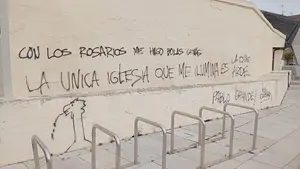 CON LOS ROSARIOS ME HAGO BOLAS CHINAS
LA UNICA IGLESIA QUE ME ILUMINA ES LA QUE ARDE
PABLO GRANDE